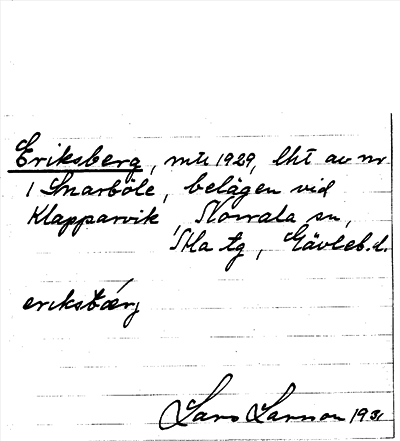 Eriksberg, mtl 1929, lht av nr
1 Snarböle, belägen vid
Klapparvik, Norrala sn,
Ala tg, Gävleb.l.
eriksbærj
Lars Larsson 1931